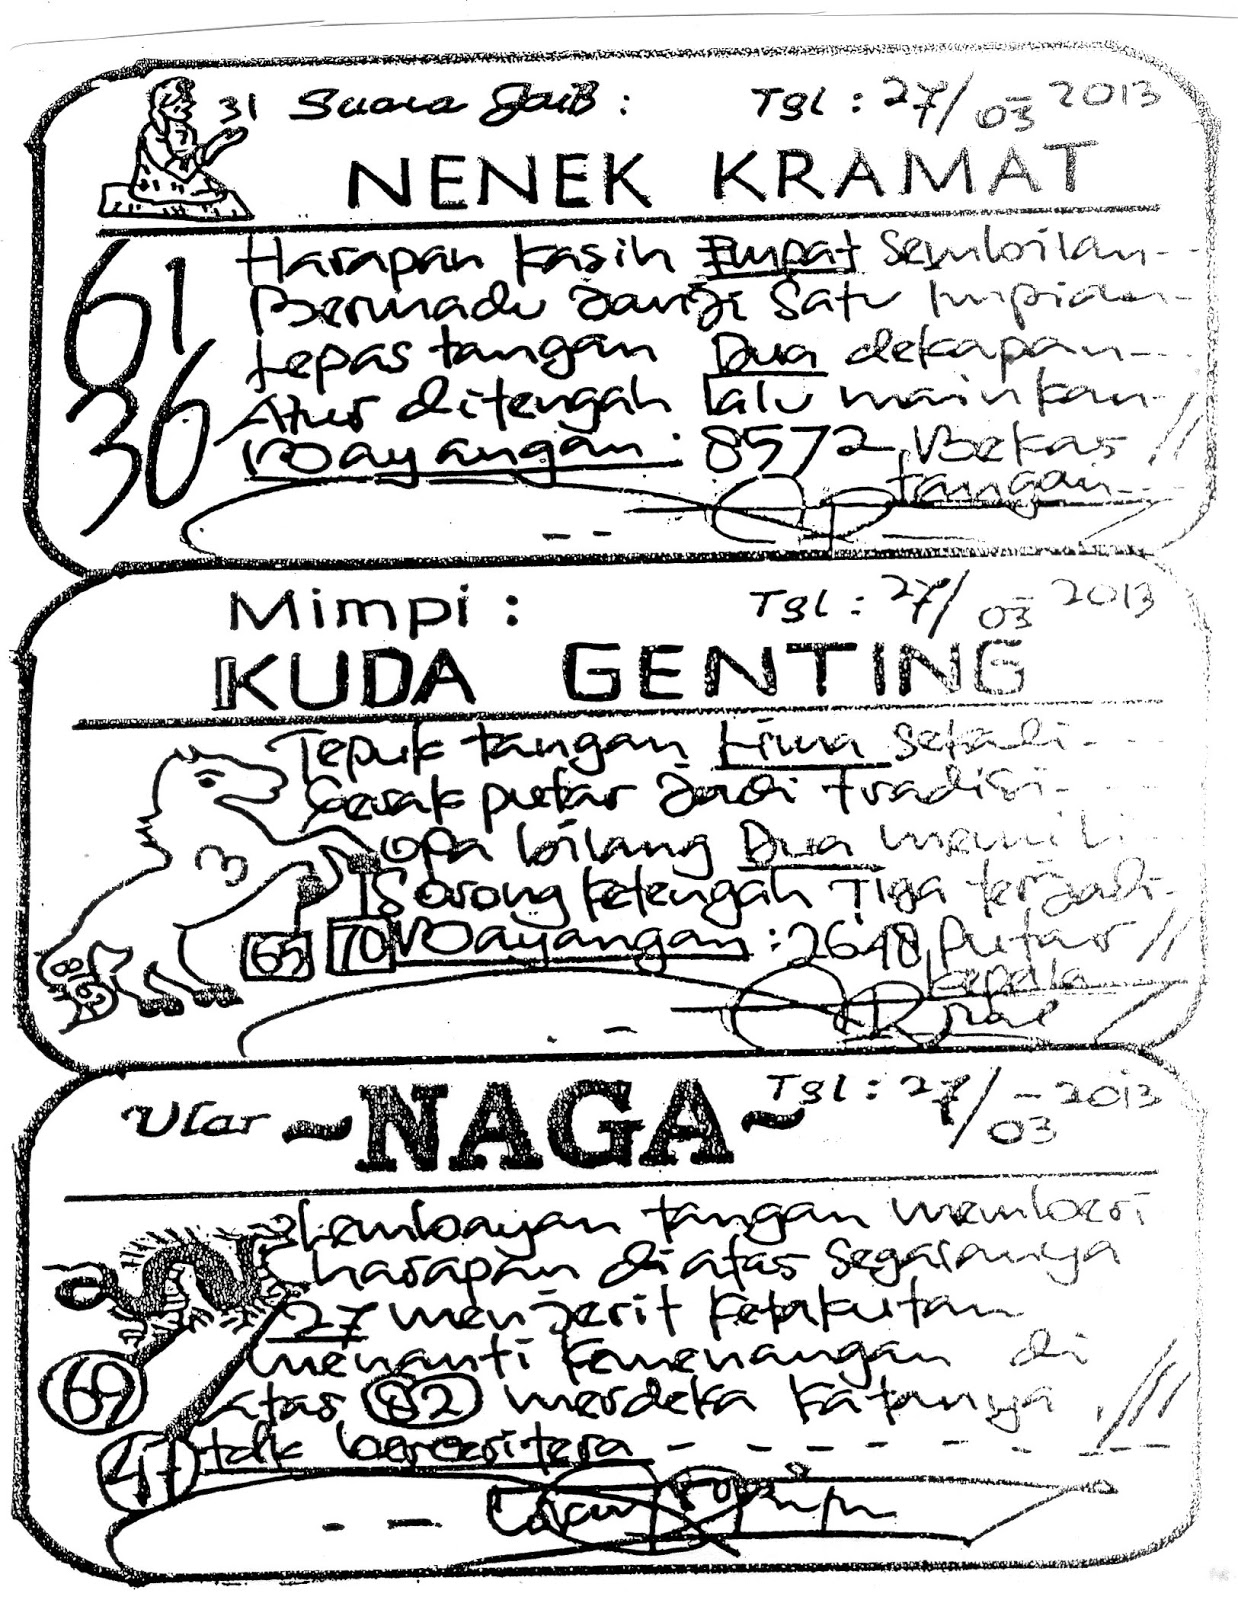 31 Suara Gaib : Tgl : 27/03 2013
NENEK KRAMAT
61
36
Harapan kasih Empat Sembilan--
Bermadu Janji Satu Impian-
Lepas tangan Dua dekapan--
Atur ditengah lalu mainkan-//
Bayangan : 8572, Bekas
tangan--
Mimpi : Tgl : 27/03 2013
KUDA GENTING
Tepuk tangan Lima Sekali---
Gerak putar Jadi tradisi---
Opa bilang Dua memili
Sorong ketengah Tiga terjadi-
3
65 70 Bayangan : 2648, Putar //
kepala
Ular ~NAGA~ Tgl : 27/03 - 2013
Lembayan tangan memberi
harapan diatas Segaranya
27 menjerit ketakutan
menanti kemenangan di
69 atas 82 merdeka katanya
47 tak berceritera - - - - - - -